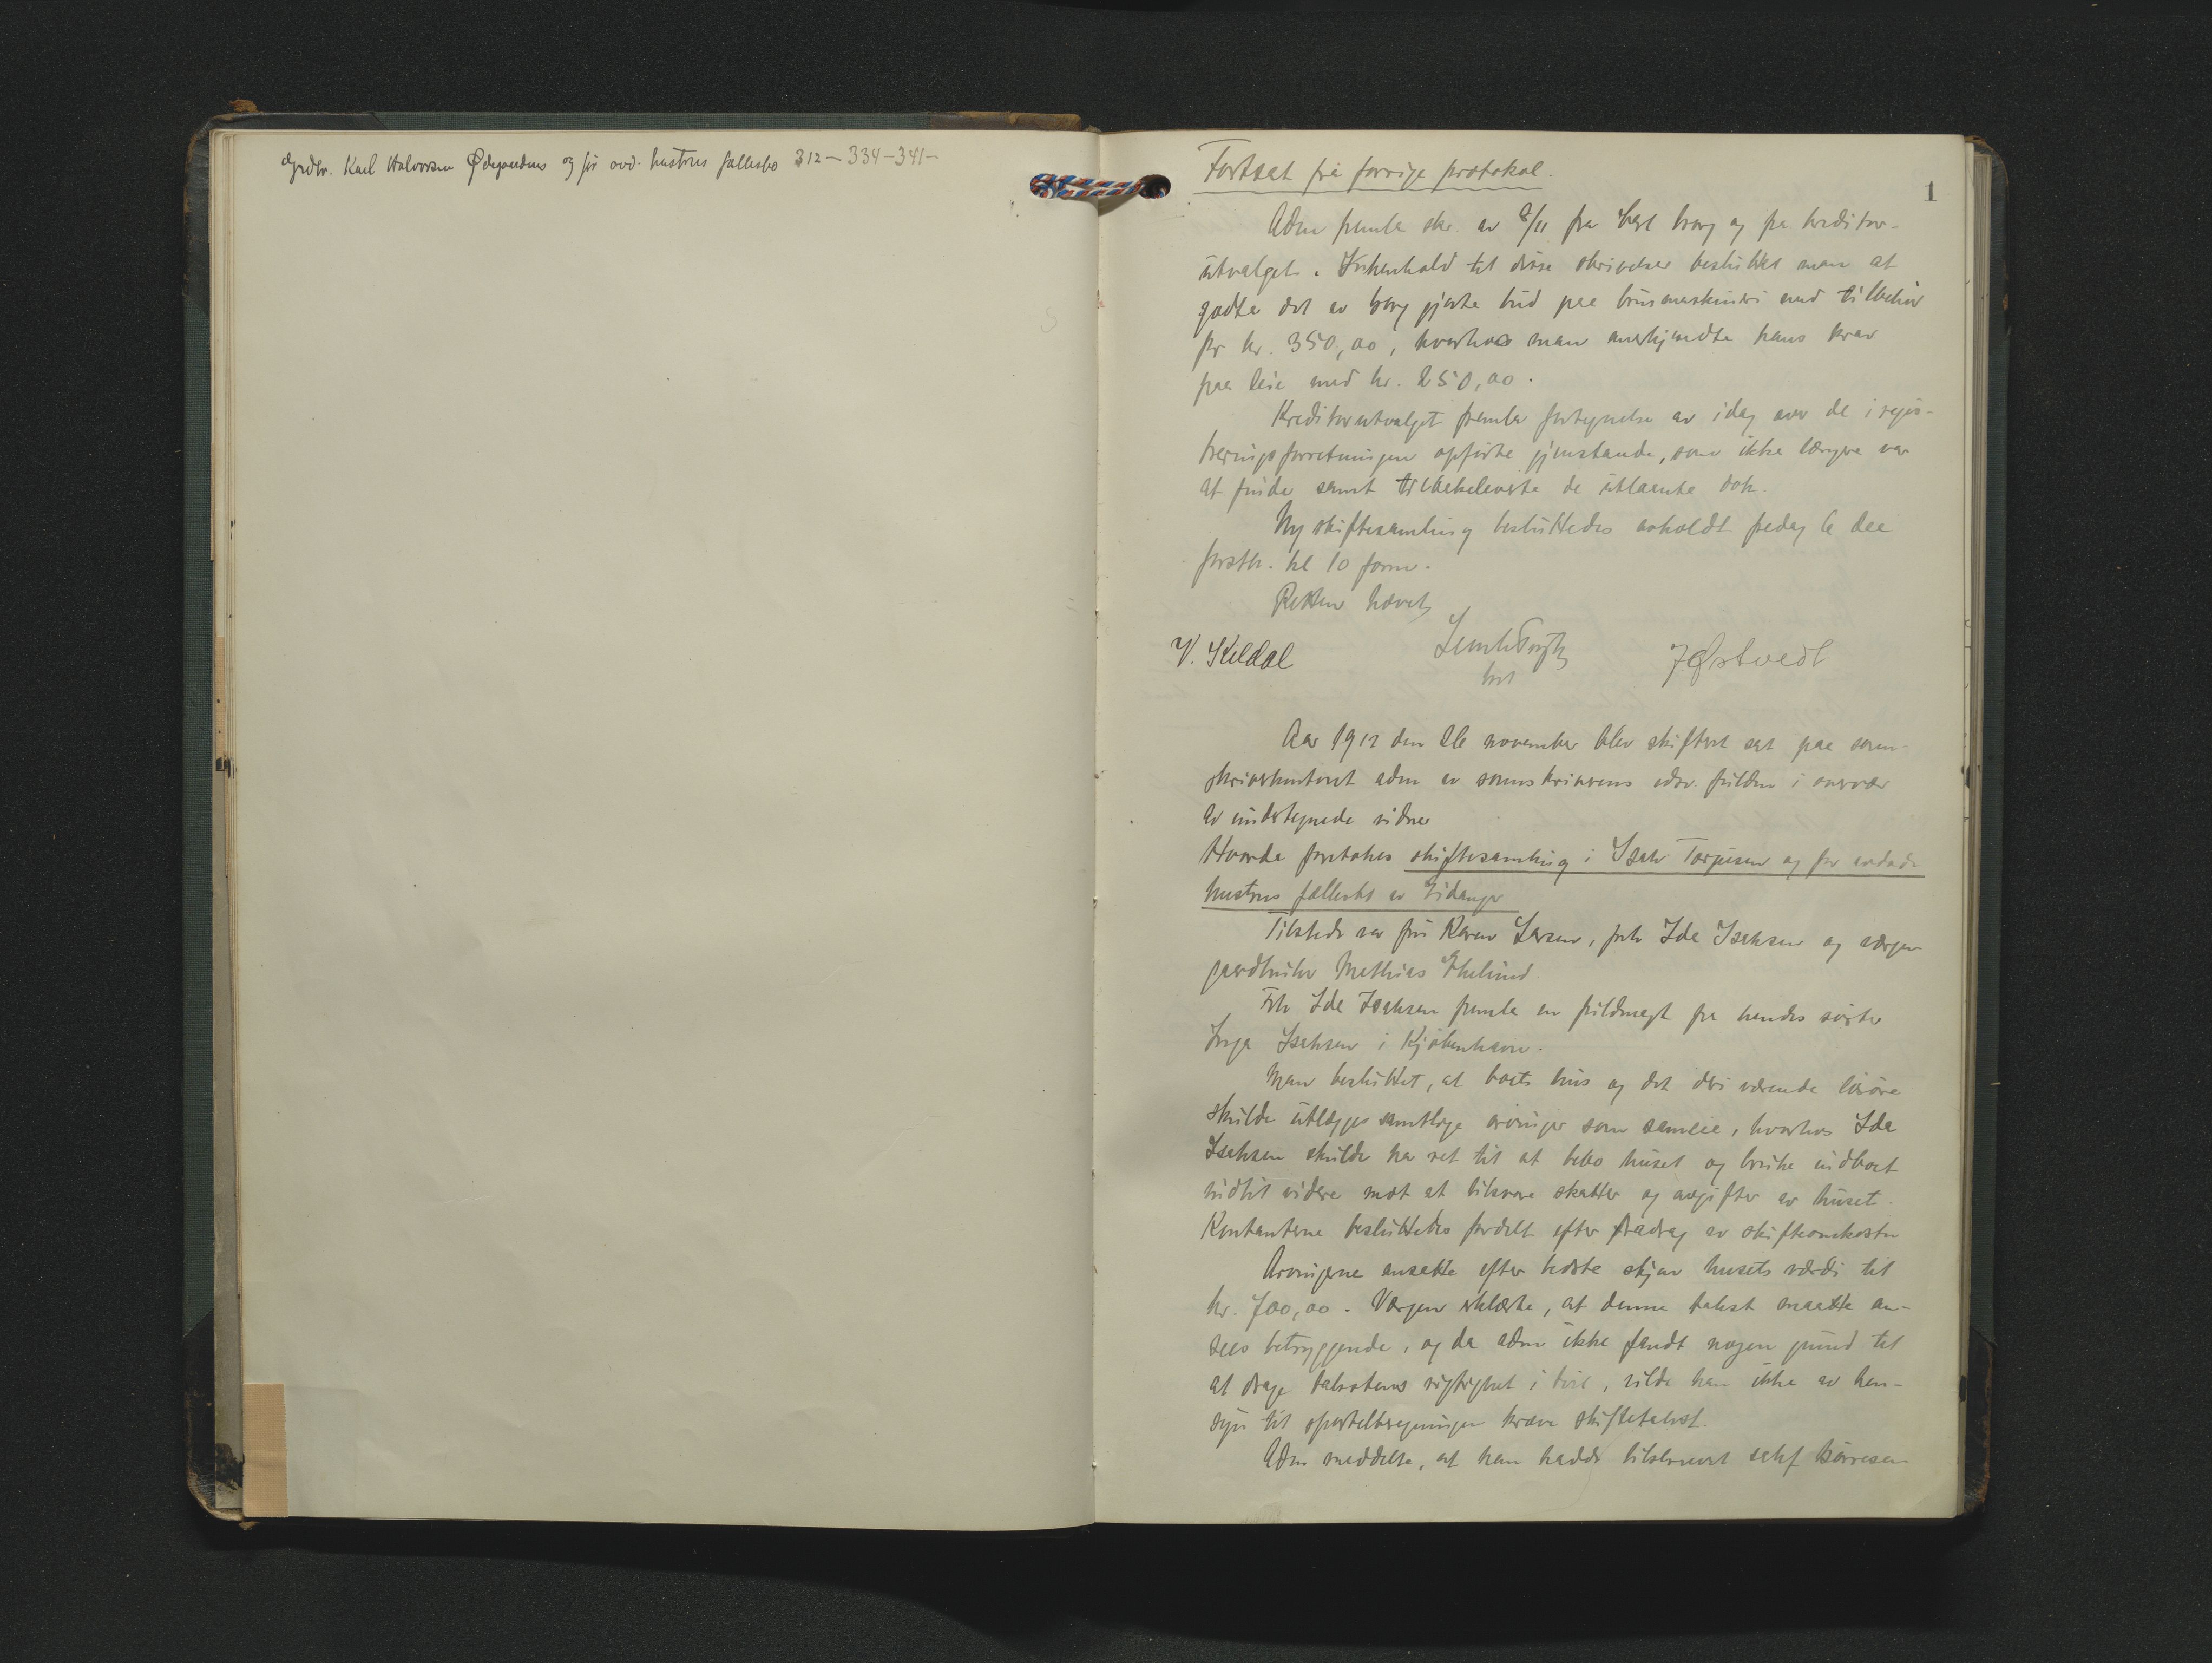 Karl Halvorsen Ødegaardens og før avd. hustrus fællesbo 312 – 334 – 341 –
1
Fortsat fra forrige protokol.
Adm fremla skr. av 8/11 fra Carl Borg og fra kreditor-
utvalget. I henhold til disse skrivelser besluttet man at
godta det av Borg gjorte bud paa brusmaskineri med tilbehør
for kr. 350,00, hvorhos man anerkjendte hans krav
paa leie med kr. 250,00.
Kreditorutvalget fremla fortegnelse av idag over de i regis-
treringsforretningen opførte gjenstande, som ikke længere var
at finde samt tilbakeleverte de utlaante dok.
Ny skiftesamling besluttedes avholdt fredag 6 dec
førstk. kl 10 form.
Retten hævet
V. Kildal
J Østvedt
Aar 1912 den november blev skifteret sat paa soren-
skriverkontoret adm av sorenskriverens edsv. fuldm i overvær
av undertegnede vidner
Hvorda foretokes skiftesamling i Isak Torjusen og før avdøde
hustrus fællesbo av Eidanger
Tilstede var fru Karen Larsen, frk Ida Isaksen og værgen
gaardbruker Mathias Ekelund
Frk Ida Isaksen fremla en fuldmagt fra hendes søster
Inga Isaksen i Kjøbenhavn.
Man besluttet, at boets hus og det deri værende løsøre
skulde utlægges samtlige arvinger som sameie, hvorhos Ida
Isaksen skulde ha ret til at bebo huset og bruke indboet
indtil videre mot at tilsvare skatter og avgifter av huset.
Kontanterne besluttedes fordelt efter fradrag av skifteomkostn
Arvingerne ansatte efter bedste skjøn husets værdi til
kr. 700,00. Værgen erklærte, at denne takst maatte an-
sees betryggende, og da adm ikke fandt nogen grund til
at drage takstens rigtighet i tvil, vilde han ikke av hen-
syn til sportelberegningen kræve skiftetakst.
Adm meddelte, at han hadde tilskrevet sakf